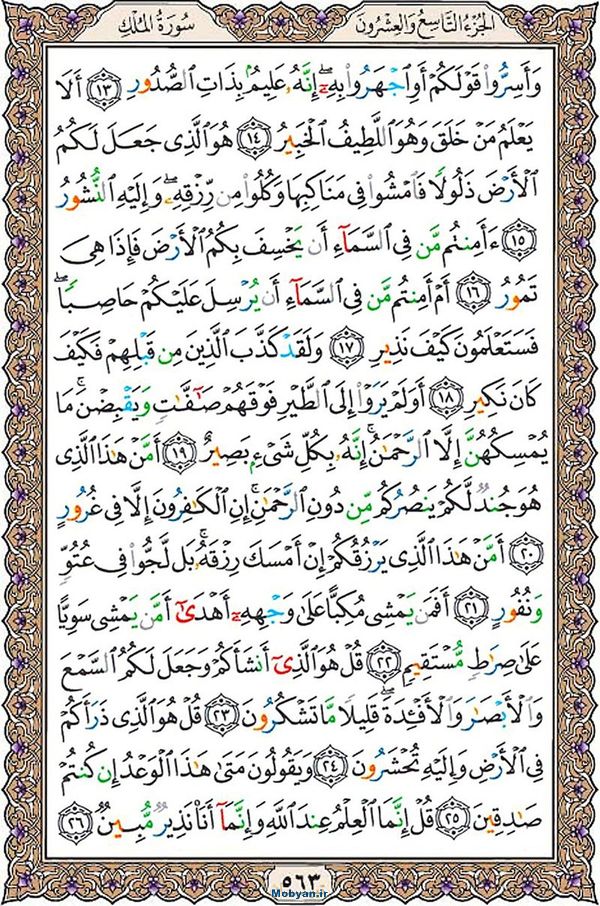 الجزء التاسع والعشرون
سورة الملك
وَأَسِرُّوا۟ قَوْلَكُمْ أَوِ ٱجْهَرُوا۟ بِهِۦٓ ۖ إِنَّهُۥ عَلِيمٌۢ بِذَاتِ ٱلصُّدُورِ ﴿١٣﴾ أَلَا
يَعْلَمُ مَنْ خَلَقَ وَهُوَ ٱللَّطِيفُ ٱلْخَبِيرُ ﴿١٤﴾ هُوَ ٱلَّذِى جَعَلَ لَكُمُ
ٱلْأَرْضَ ذَلُولًا فَٱمْشُوا۟ فِى مَنَاكِبِهَا وَكُلُوا۟ مِن رِّزْقِهِۦ ۖ وَإِلَيْهِ ٱلنُّشُورُ
﴿١٥﴾ ءَأَمِنتُم مَّن فِى ٱلسَّمَآءِ أَن يَخْسِفَ بِكُمُ ٱلْأَرْضَ فَإِذَا هِىَ
تَمُورُ ﴿١٦﴾ أَمْ أَمِنتُم مَّن فِى ٱلسَّمَآءِ أَن يُرْسِلَ عَلَيْكُمْ حَاصِبًا ۖ
فَسَتَعْلَمُونَ كَيْفَ نَذِيرِ ﴿١٧﴾ وَلَقَدْ كَذَّبَ ٱلَّذِينَ مِن قَبْلِهِمْ فَكَيْفَ
كَانَ نَكِيرِ ﴿١٨﴾ أَوَلَمْ يَرَوْا۟ إِلَى ٱلطَّيْرِ فَوْقَهُمْ صَـٰٓفَّـٰتٍ وَيَقْبِضْنَ ۚ مَا
يُمْسِكُهُنَّ إِلَّا ٱلرَّحْمَـٰنُ ۚ إِنَّهُۥ بِكُلِّ شَىْءٍۭ بَصِيرٌ ﴿١٩﴾ أَمَّنْ هَـٰذَا ٱلَّذِى
هُوَ جُندٌ لَّكُمْ يَنصُرُكُم مِّن دُونِ ٱلرَّحْمَـٰنِ ۚ إِنِ ٱلْكَـٰفِرُونَ إِلَّا فِى غُرُورٍ
﴿٢٠﴾ أَمَّنْ هَـٰذَا ٱلَّذِى يَرْزُقُكُمْ إِنْ أَمْسَكَ رِزْقَهُۥ ۚ بَل لَّجُّوا۟ فِى عُتُوٍّ
وَنُفُورٍ ﴿٢١﴾ أَفَمَن يَمْشِى مُكِبًّا عَلَىٰ وَجْهِهِۦٓ أَهْدَىٰٓ أَمَّن يَمْشِى سَوِيًّا
عَلَىٰ صِرَٰطٍ مُّسْتَقِيمٍ ﴿٢٢﴾ قُلْ هُوَ ٱلَّذِىٓ أَنشَأَكُمْ وَجَعَلَ لَكُمُ ٱلسَّمْعَ
وَٱلْأَبْصَـٰرَ وَٱلْأَفْـِٔدَةَ ۖ قَلِيلًا مَّا تَشْكُرُونَ ﴿٢٣﴾ قُلْ هُوَ ٱلَّذِى ذَرَأَكُمْ
فِى ٱلْأَرْضِ وَإِلَيْهِ تُحْشَرُونَ ﴿٢٤﴾ وَيَقُولُونَ مَتَىٰ هَـٰذَا ٱلْوَعْدُ إِن كُنتُمْ
صَـٰدِقِينَ ﴿٢٥﴾ قُلْ إِنَّمَا ٱلْعِلْمُ عِندَ ٱللَّهِ وَإِنَّمَآ أَنَا۠ نَذِيرٌ مُّبِينٌ ﴿٢٦﴾
٥٦٣
Mobyan.ir